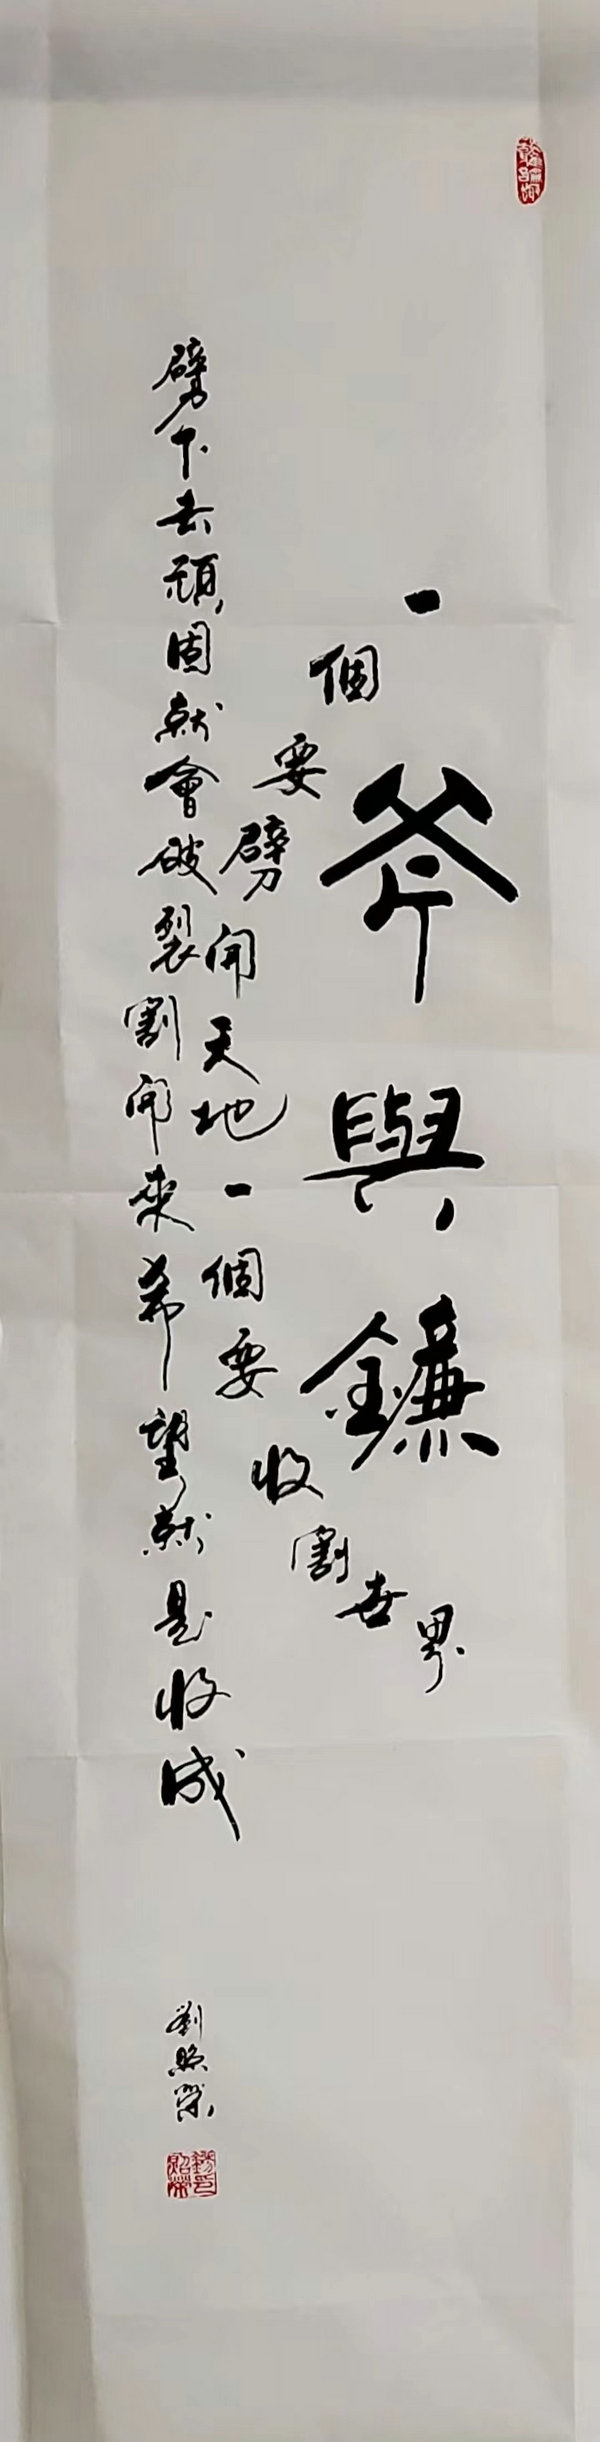 斧與鐮
一個要劈開天地一個要收割世界
劈下去頑固就會破裂割開來希望就是收成
劉照榮